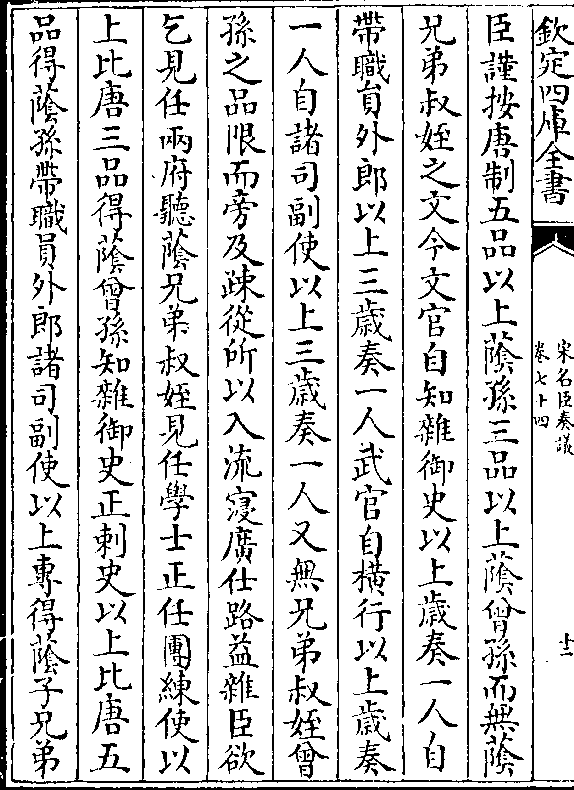 欽定四庫全書
宋名臣奏議
卷七十四
十二
臣謹按唐制五品以上蔭孫三品以上蔭曾孫而無蔭
兄弟叔姪之文今文官自知雜御史以上歲奏一人自
帶職員外郎以上三歲奏一人武官自橫行以上歲奏
一人自諸司副使以上三歲奏一人又無兄弟叔姪曾
孫之品限而旁及疎從所以入流寖廣仕路益雜臣欲
乞見任兩府聽蔭兄弟叔姪見任學士正任團練使以
上比唐三品得蔭曾孫知雜御史正刺史以上比唐五
品得蔭孫帶職員外郎諸司副使以上專得蔭子兄弟